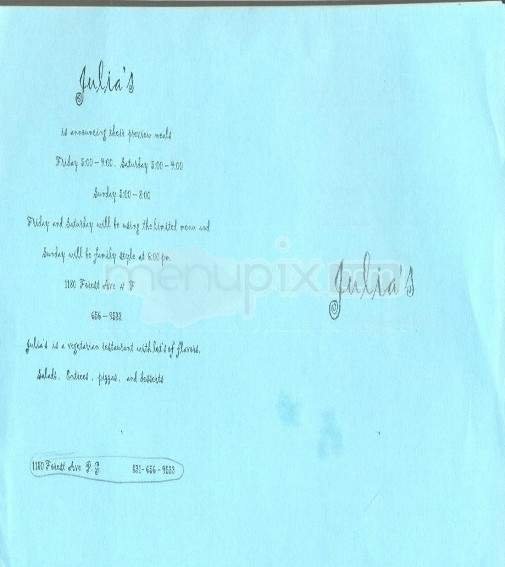 Julia's
is announcing their preview meals
Friday 5:00 - 9:00. Saturday 5:00 - 9:00
Sunday 5:00 - 8:00
Friday and Saturday will be using the limited menu and
Sunday will be family style at 6:00 pm
1180 Forest Ave # F
656 - 9533
Julia's is a vegetarian restaurant with lot's of flavors.
Salads. Entrees. pizzas. and desserts
1180 Forest Ave P.G
831 - 656 - 9533
menupix.com
Julia's